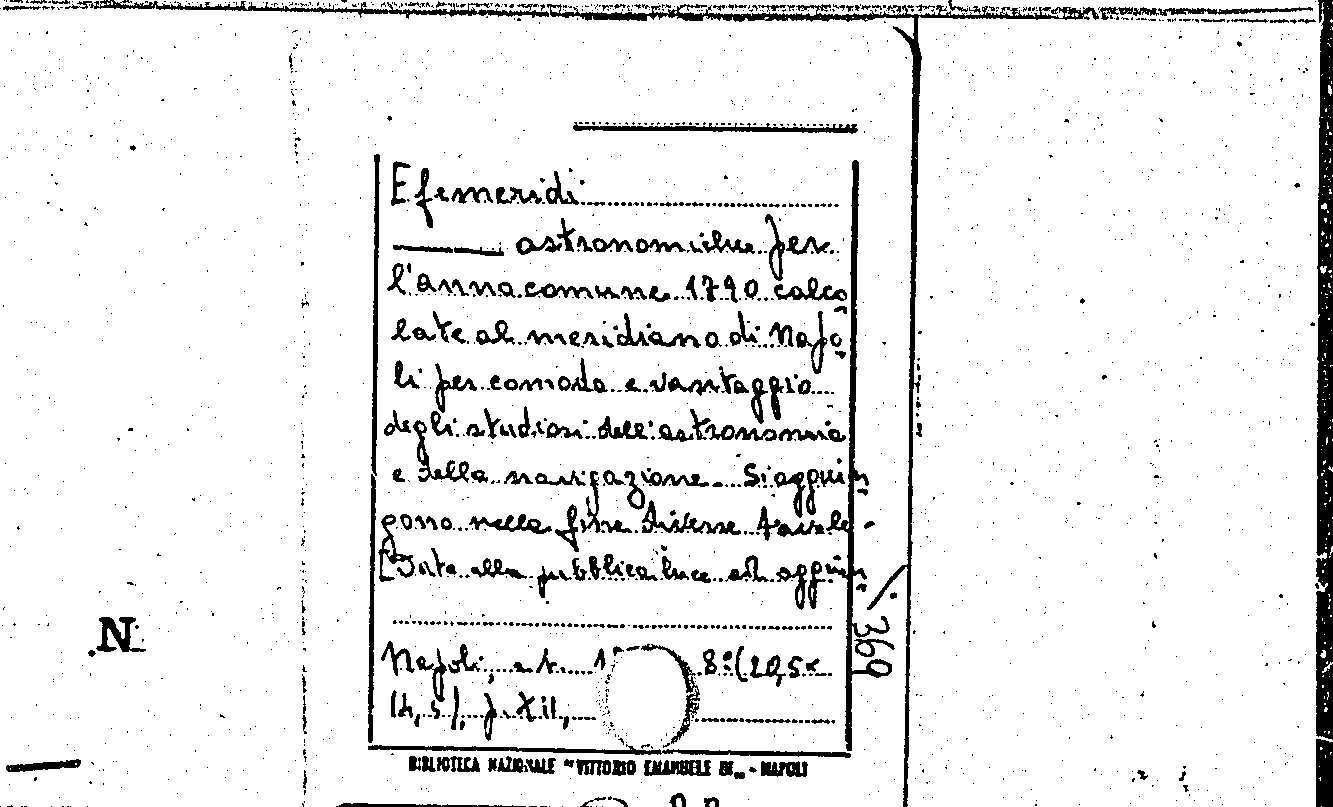 Efemeridi
astronomiche per
l'anno comune 1790 calco
late al meridiano di Napo
li per comodo e vantaggio
degli studiosi dell'astronomia
e della navigazione. Si aggiun
gono nella fine diverse tavole -
[Date alla pubblica luce ed aggiun
Napoli, s.t. 8° (20,5x
14,5), p. XII,
369
BIBLIOTECA NAZIONALE "VITTORIO EMANUELE III„ - NAPOLI
N